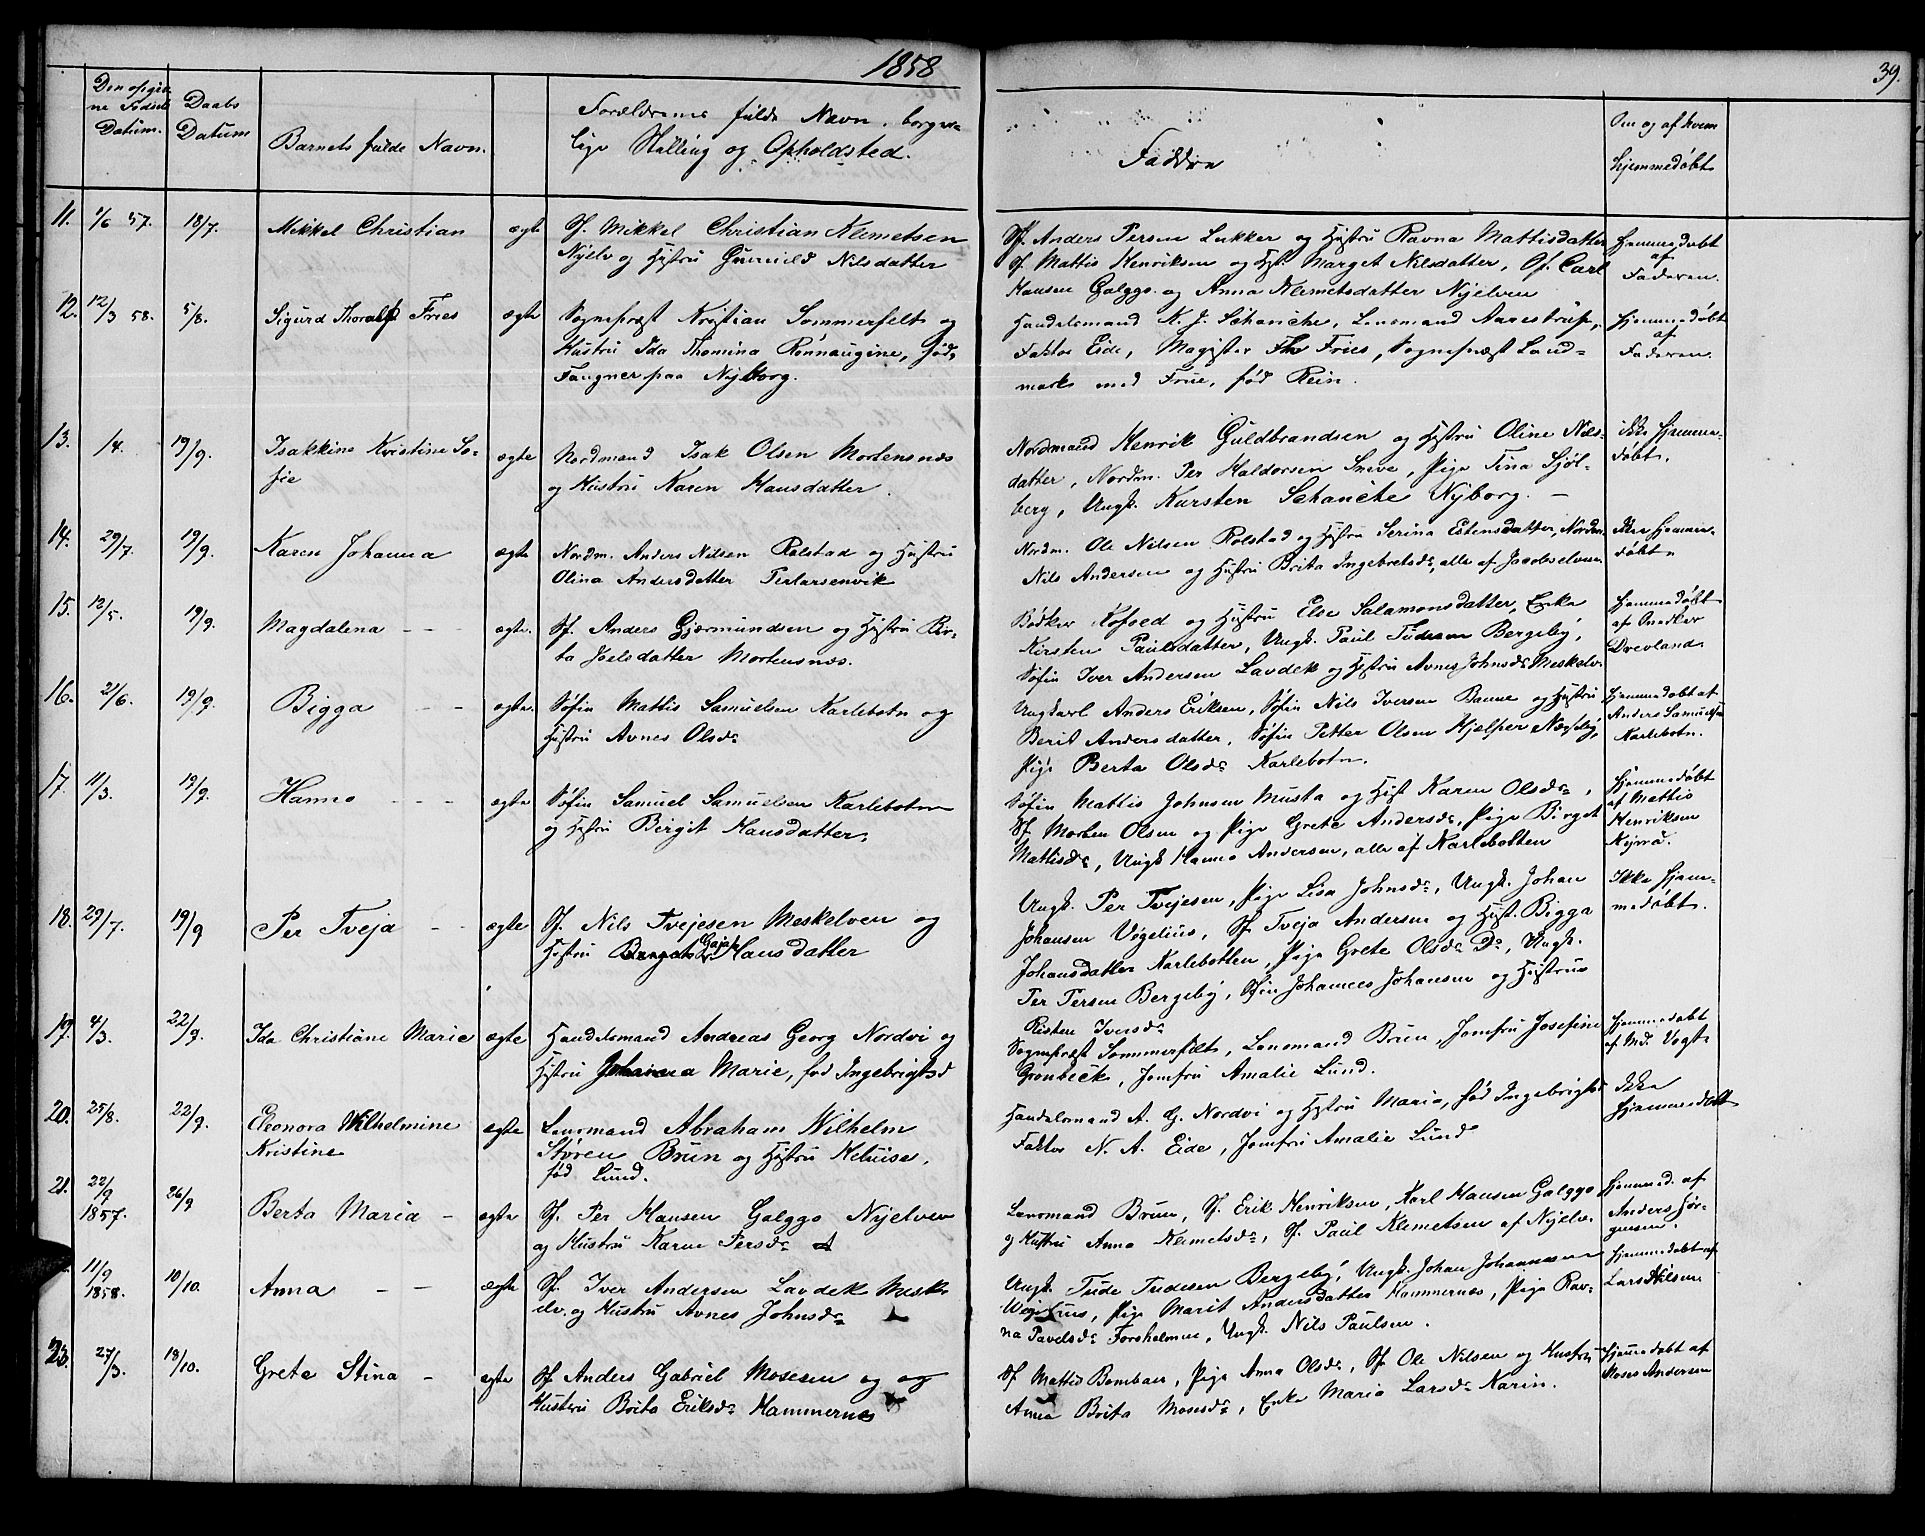 1858
39.
Den opgiv-
ne Fødsels
Datum.
Daabs
Datum
Barnets fulde Navn.
Forældrenes fulde Navn, borger-
lige Stilling og Opholdsted.
Faddre
Om og af hvem
hjemmedøbt
11. 1/6 57. 18/7. Mikkel Christian ægte Sf. Mikkel Christian Klemetsen
Nyelv og Hustru Gunnild Nilsdatter
Sf. Anders Persen Lukker og Hustru Ravna Mattisdatter
Sf. Mattis Henriksen og Hst. Marget Nilsdatter, Sf. Carl
Hansen Galggo. og Anna Klemetsdatter Nyelven
Hjemmedøbt
af
Faderen.
12. 12/3 58. 5/8. Sigurd Thoralf Fries ægte Sognepræst Kristian Sommerfelt og
Hustru Ida Thomina Rønnaugine, fød
Fangner paa Nyborg.
Handelsmand K. J. Schanche, Lensmand Aarestrup,
Faktor Eide, Magister Th Fries, Sognepræst Land-
mark med Frue, fød Rein.
Hjemmedøbt
af
Faderen.
13. 1/4. 19/9. Isakkine Kristine So-
fie
ægte Nordmand Isak Olsen Mortensnæs
og Hustru Karen Hansdatter.
Nordmand Henrik Guldbrandsen og Hustru Oline Nils-
datter, Nordm. Per Haldorsen Sneve, Pige Tina Sjøl-
berg, Ungk. Karsten Schanche Nyborg. –
ikke hjemme-
døbt.
14. 29/7. 19/9. Karen Johanna ægte Nordm. Anders Nilsen Rolstad og Hustru
Olina Andersdatter Perlarsenvik
Nordm. Ole Nilsen Rolstad og Hustru Serina Estensdatter, Nordm.
Nils Andersen og Hustru Brita Ingebretsdr, alle af Jacobselven
ikke hjemme-
døbt.
15. 12/5. 19/9. Magdalena – – ægte. Sf. Anders Gjermundsen og Hustru Ber-
ta Joelsdatter Mortensnæs.
Bødker Kofoed og Hustru Else Salamonsdatter, Enke
Kirsten Paulsdatter, Ungk. Paul Tudesen Bergeby,
Søfin Iver Andersen Lavdek og Hustru Avnes Johnsdr Meskelv.
Hjemmedøbt
af
Drevland.
16. 21/6. 19/9. Bigga – – ægte. Søfin Mattis Samuelsen Karlebotn og
Hustru Avnes Olsdr
Ungkarl Anders Eriksen, Søfin Nils Iversen Banne og Hustru
Berit Andersdatter, Søfin Petter Olsen Hjelper Næsseby,
Pige Berta Olsdr Karlebotn.
hjemmedøbt af
Anders Samuelsen
Karlebotn.
17. 11/3. 19/9. Hanno – – – ægte Søfin Samuel Samuelsen Karlebotn
og Hustru Birgit Hansdatter.
Søfin Mattis Johnsen Musta og Hust Karen Olsdr,
Sf. Morten Olsen og Pige Grete Andersdr, Pige Birget
Mattisdr, Ungk Hanno Andersen, alle af Karlebotten
hjemmedøbt
af Mattis
Henriksen
18. 29/7. 19/9 Per Tveja – – ægte Sf. Nils Tvejesen Meskelven og
Hustru Gaja Hansdatter
Ungk. Per Tvejesen, Pige Lisa Johnsdr, Ungk. Johan
Johansen Vogelius, Sf. Tveja Andersen og Hust. Bigga
Johansdatter Karlebotten, Pige Grete Olsdr Do, Ungk.
Per Persen Bergeby, Sfin Johannes Johansen og Hustrue
Risten Iversdr
Ikke hjem-
medøbt.
19. 4/3. 22/9. Ida Christiane Marie ægte Handelsmand Andreas Georg Nordvi og
Hustru Johanna Marie, fød Ingebrigtsd
Sognepræst Sommerfelt, Lensmand Brun, Jomfru Josefine
Grønbeck, Jomfru Amalie Lund.
hjemmedøbt
af Md. Vogt.
20. 25/8. 22/9. Eleonora Wilhelmine
Kristine
ægte Lensmand Abraham Wilhelm
Støren Brun og Hustru Heluise,
fød Lund.
Handelsmand A. G. Nordvi og Hustru Marie, fød Ingebrigtsd
Faktor N. A. Eide, Jomfru Amalie Lund
Ikke
hjemmedøbt
21. 22/9
1857. 26/9 Berta Maria – ægte Sf. Per Hansen Galggo Nyelven
og Hustru Karen Persdr
Lensmand Brun, Sf. Erik Henriksen, Karl Hansen Galggo
og Hustru Anna Klemetsdr, Sf. Paul Klemetsen af Nyelv.
hjemmed. af
Anders Jør-
gensen.
11/9
1858. 10/10. Anna – – ægte Sf. Iver Andersen Lavdek Mesk-
elv. og Hustru Avnes Johnsdr
Ungk. Tude Tudesen Bergeby, Ungk. Johan Johannesen
Pige Marit Andersdatter Hammernes, Pige Rav-
na Pavelsdr Forsholmen, Ungk. Nils Paulsen.
hjemmedøbt af
Lars Nilsen
23. 27/3. 18/10. Greta Stina – ægte Sf. Anders Gabriel Mosesen og og
Hustru Brita Eriksdr Hammernes
Sf. Mattis Bomban, Pige Anna Olsdr, Sf. Ole Nilsen og Hustru
Anna Brita Mosesdr, Enke Maria Larsdr Karin.
hjemmedøbt af
Moses Andersen